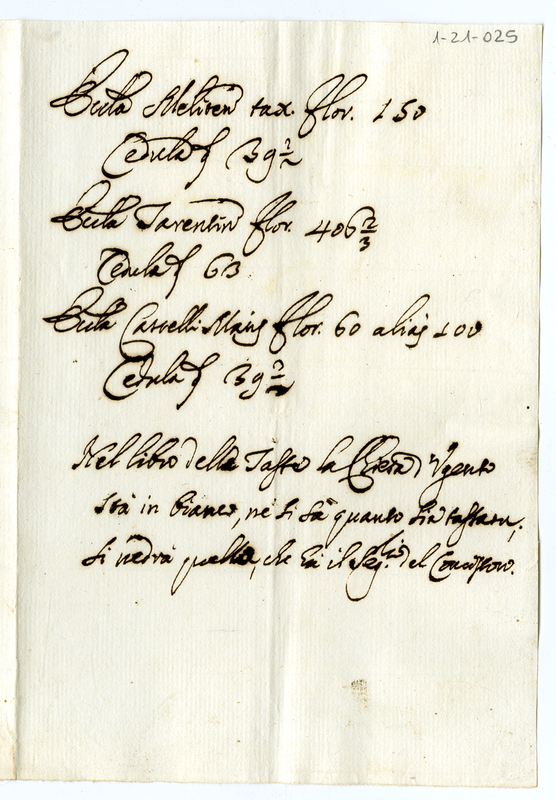 1-21-025
Bulla Meliten tax. flor. 150
Cedula 39 1/2
Bulla Tarentin flor. 406 2/3
Cedula 63
Bulla Castelli Maris flor. 60 alias 100
Cedula 39 1/2
Nel libro delle Tasse la Chiesa d'Vgento
stà in bianco, nè si sà quanto sia tassata,
si vedrà quello, che hà il Seg.rio del Concistoro.